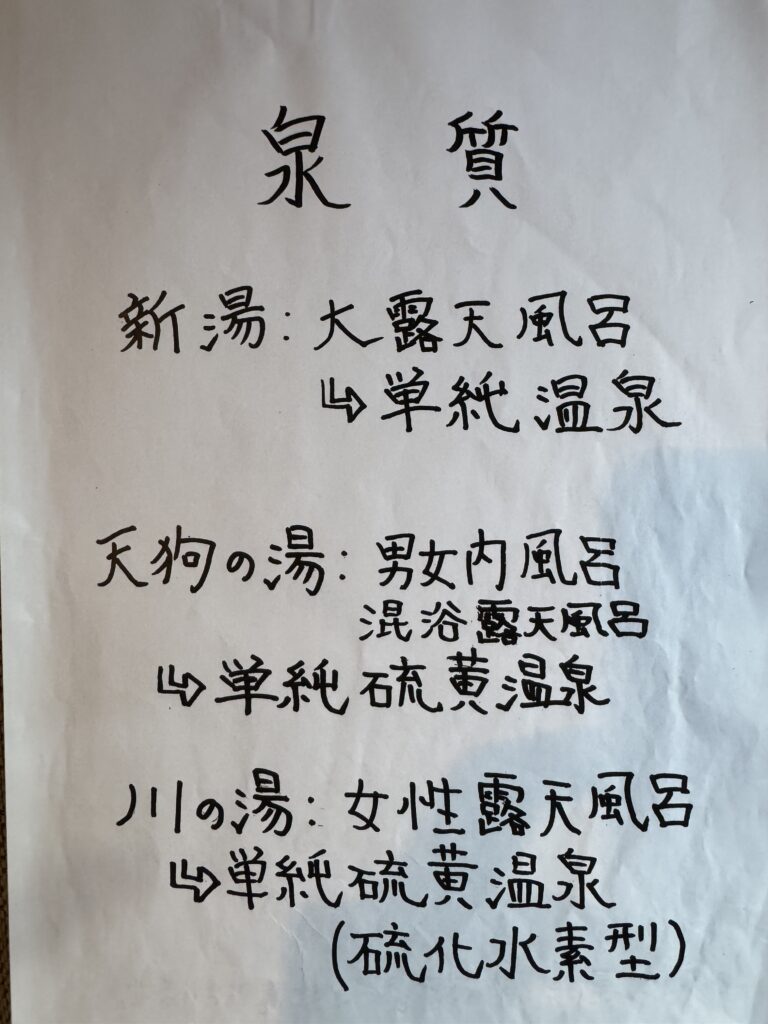 泉質
新湯：大露天風呂
↳単純温泉
天狗の湯：男女内風呂
混浴露天風呂
↳単純硫黄温泉
川の湯：女性露天風呂
↳単純硫黄温泉
(硫化水素型)